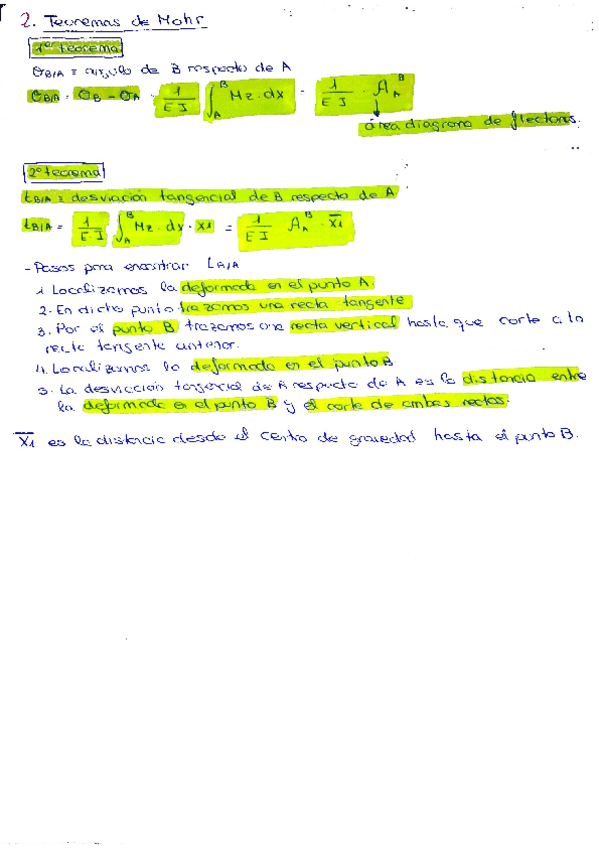 2. Teoremas de Mohr
1º teorema
θB/A ≡ angulo de B respecto de A
θB/A = θB - θA = 1/EI ∫_A^B Mz·dx = 1/EI · A_A^B
área diagrama de flectores.
2º teorema
tB/A ≡ desviación tangencial de B respecto de A
tB/A = 1/EI ∫_A^B Mz·dx · x1 = 1/EI A_A^B · x̄1
- Pasos para encontrar tB/A
1 Localizamos la deformada en el punto A.
2. En dicho punto trazamos una recta tangente
3. Por el punto B trazamos una recta vertical hasta que corte a la
recta tangente anterior.
4. Localizamos la deformada en el punto B
5. La desviacion tangencial de A respecto de A es la distancia entre
la deformada en el punto B y el corte de ambas rectas.
x̄1 es la distancia desde el centro de gravedad hasta el punto B.